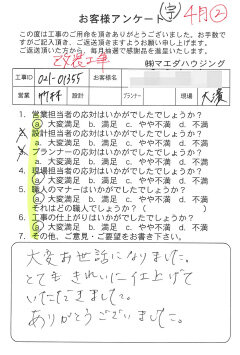 お客様アンケート 宇 4月②
この度は工事のご用命を頂きありがとうございます。お手数で
すがご記入頂き、ご返送頂きますようお願い申し上げます。
ご返送頂いた方から、毎月抽選で感謝品が当たります。
改装工事 ㈱マエダハウジング
工事ID 021-01355 お客様名
営業 竹林 設計 プランナー 現場 大濱
1. 営業担当者の応対はいかがでしたでしょうか？
a. 大変満足 b. 満足 c. やや不満 d. 不満
2. 設計担当者の応対はいかがでしたでしょうか？
a. 大変満足 b. 満足 c. やや不満 d. 不満
3. プランナーの応対はいかがでしたでしょうか？
a. 大変満足 b. 満足 c. やや不満 d. 不満
4. 現場担当者の応対はいかがでしたでしょうか？
a. 大変満足 b. 満足 c. やや不満 d. 不満
5. 職人のマナーはいかがでしたでしょうか？
a. 大変満足 b. 満足 c. やや不満 d. 不満
それはどの職人でしたか？（ ）
6. 工事の仕上がりはいかがでしたでしょうか？
a. 大変満足 b. 満足 c. やや不満 d. 不満
7. その他、ご意見・ご要望をお書き下さい。
大変お世話になりました。
とてもきれいに仕上げて
いただきました。
ありがとうございました。